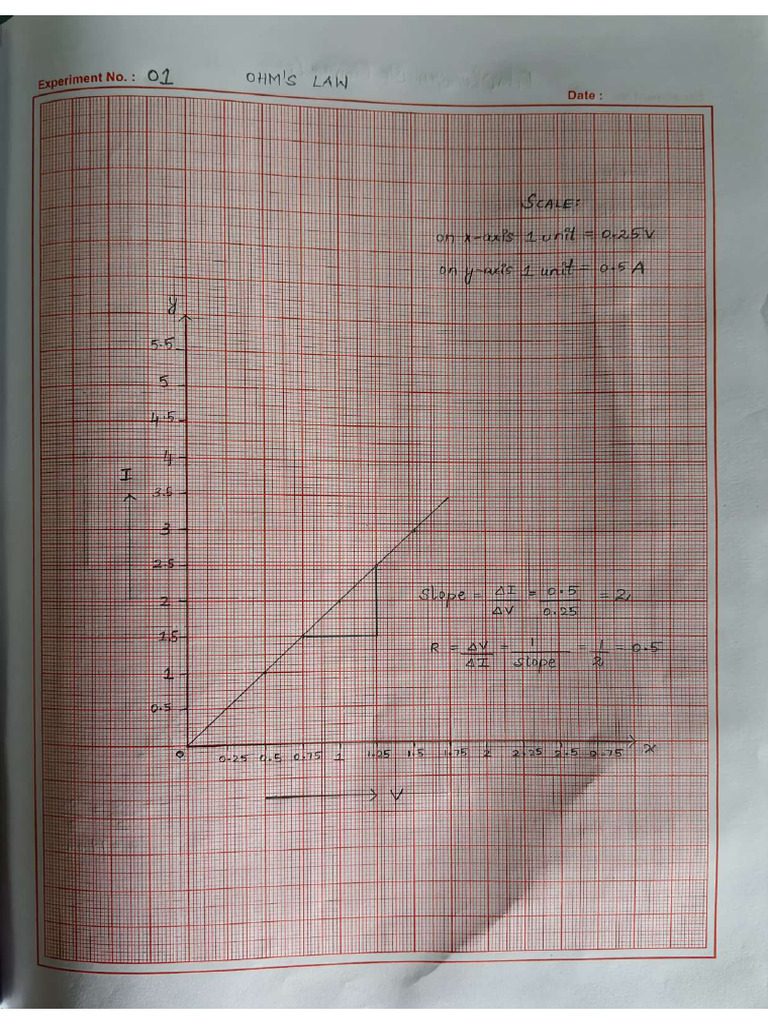 Experiment No. : 01 OHM'S LAW
Date :
SCALE:
on x-axis 1 unit = 0.25V
on y-axis 1 unit = 0.5 A
y
5.5
5
4.5
4
I
3.5
3
2.5
2
1.5
1
0.5
Slope = ΔI/ΔV = 0.5/0.25 = 2
R = ΔV/ΔI = 1/Slope = 1/2 = 0.5
0 0.25 0.5 0.75 1 1.25 1.5 1.75 2 2.25 2.5 2.75 x
V